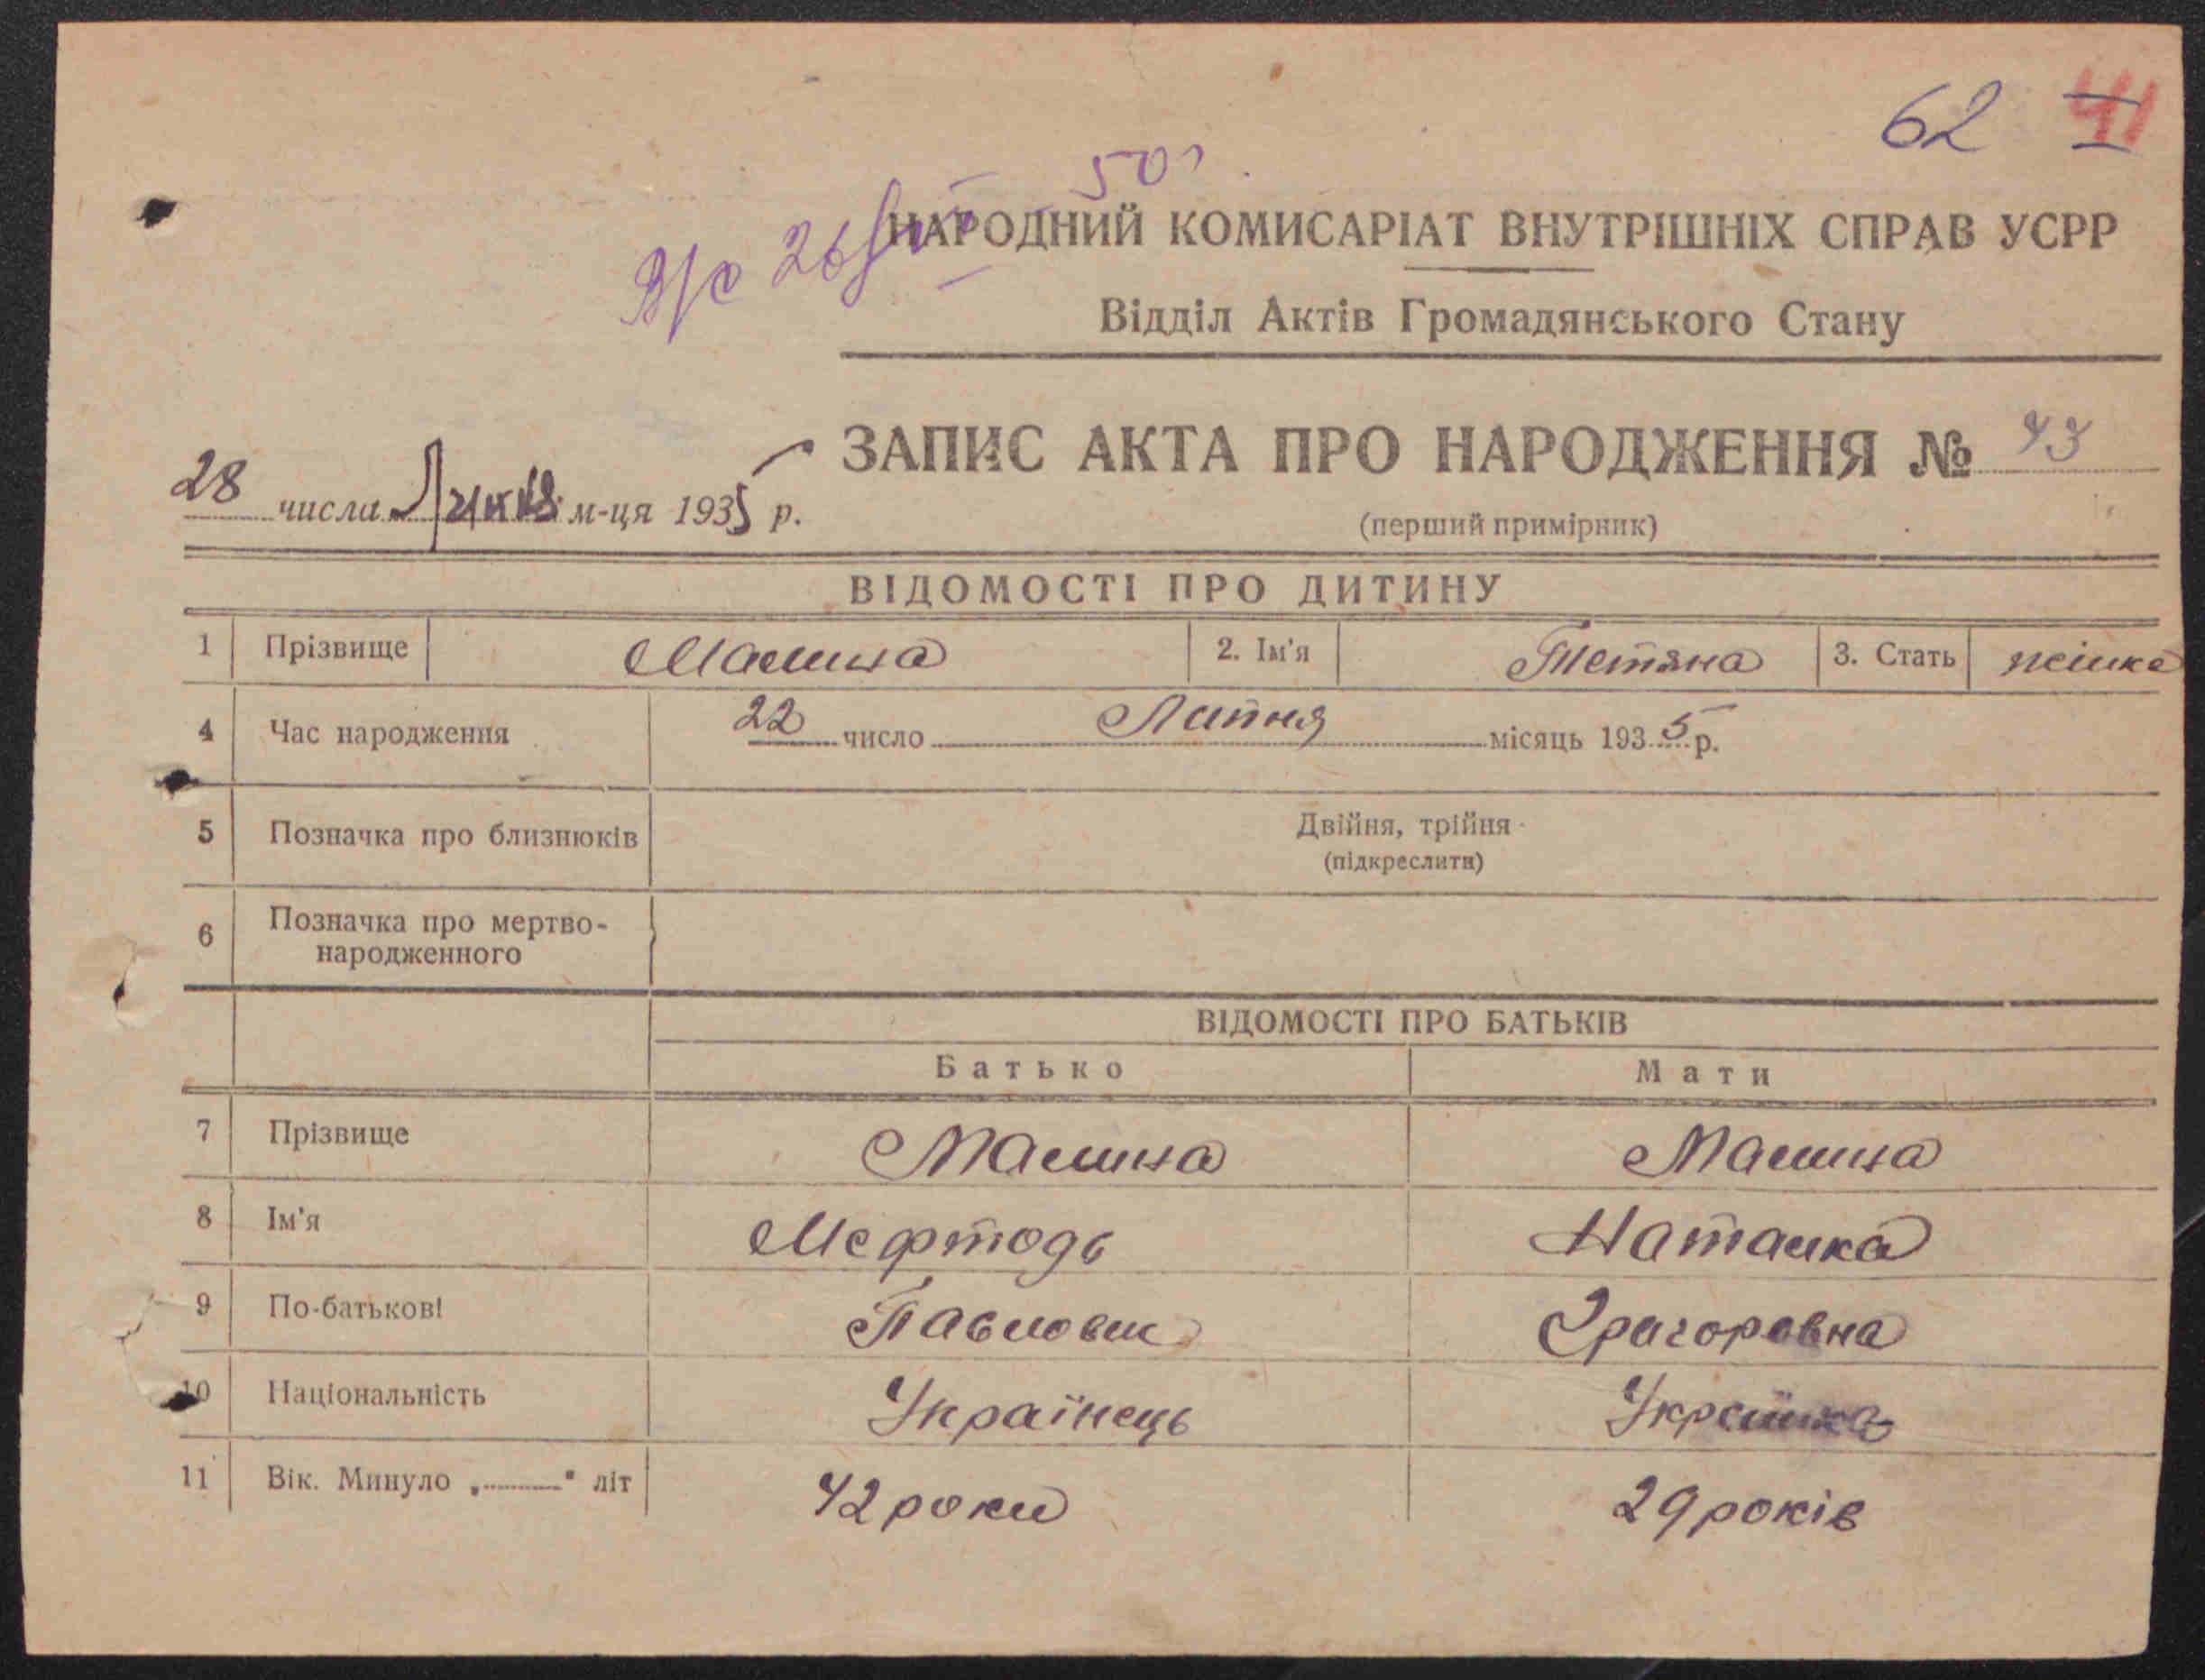 62
50
в/с 26
НАРОДНИЙ КОМИСАРІАТ ВНУТРІШНІХ СПРАВ УСРР
Відділ Актів Громадянського Стану
ЗАПИС АКТА ПРО НАРОДЖЕННЯ № 43
28 числа Липня м-ця 1935 р.
(перший примірник)
ВІДОМОСТІ ПРО ДИТИНУ
1 Прізвище Малина 2. Ім'я Тетяна 3. Стать жінка
4 Час народження 22 число Липня місяць 1935 р.
5 Позначка про близнюків Двійня, трійня
(підкреслити)
6 Позначка про мертво-
народженного
ВІДОМОСТІ ПРО БАТЬКІВ
Батько Мати
7 Прізвище Малина Малина
8 Ім'я Мефтодь Наталка
9 По-батькові Павлович Григоровна
10 Національність Українець Українка
11 Вік. Минуло „ " літ 42 роки 29 років